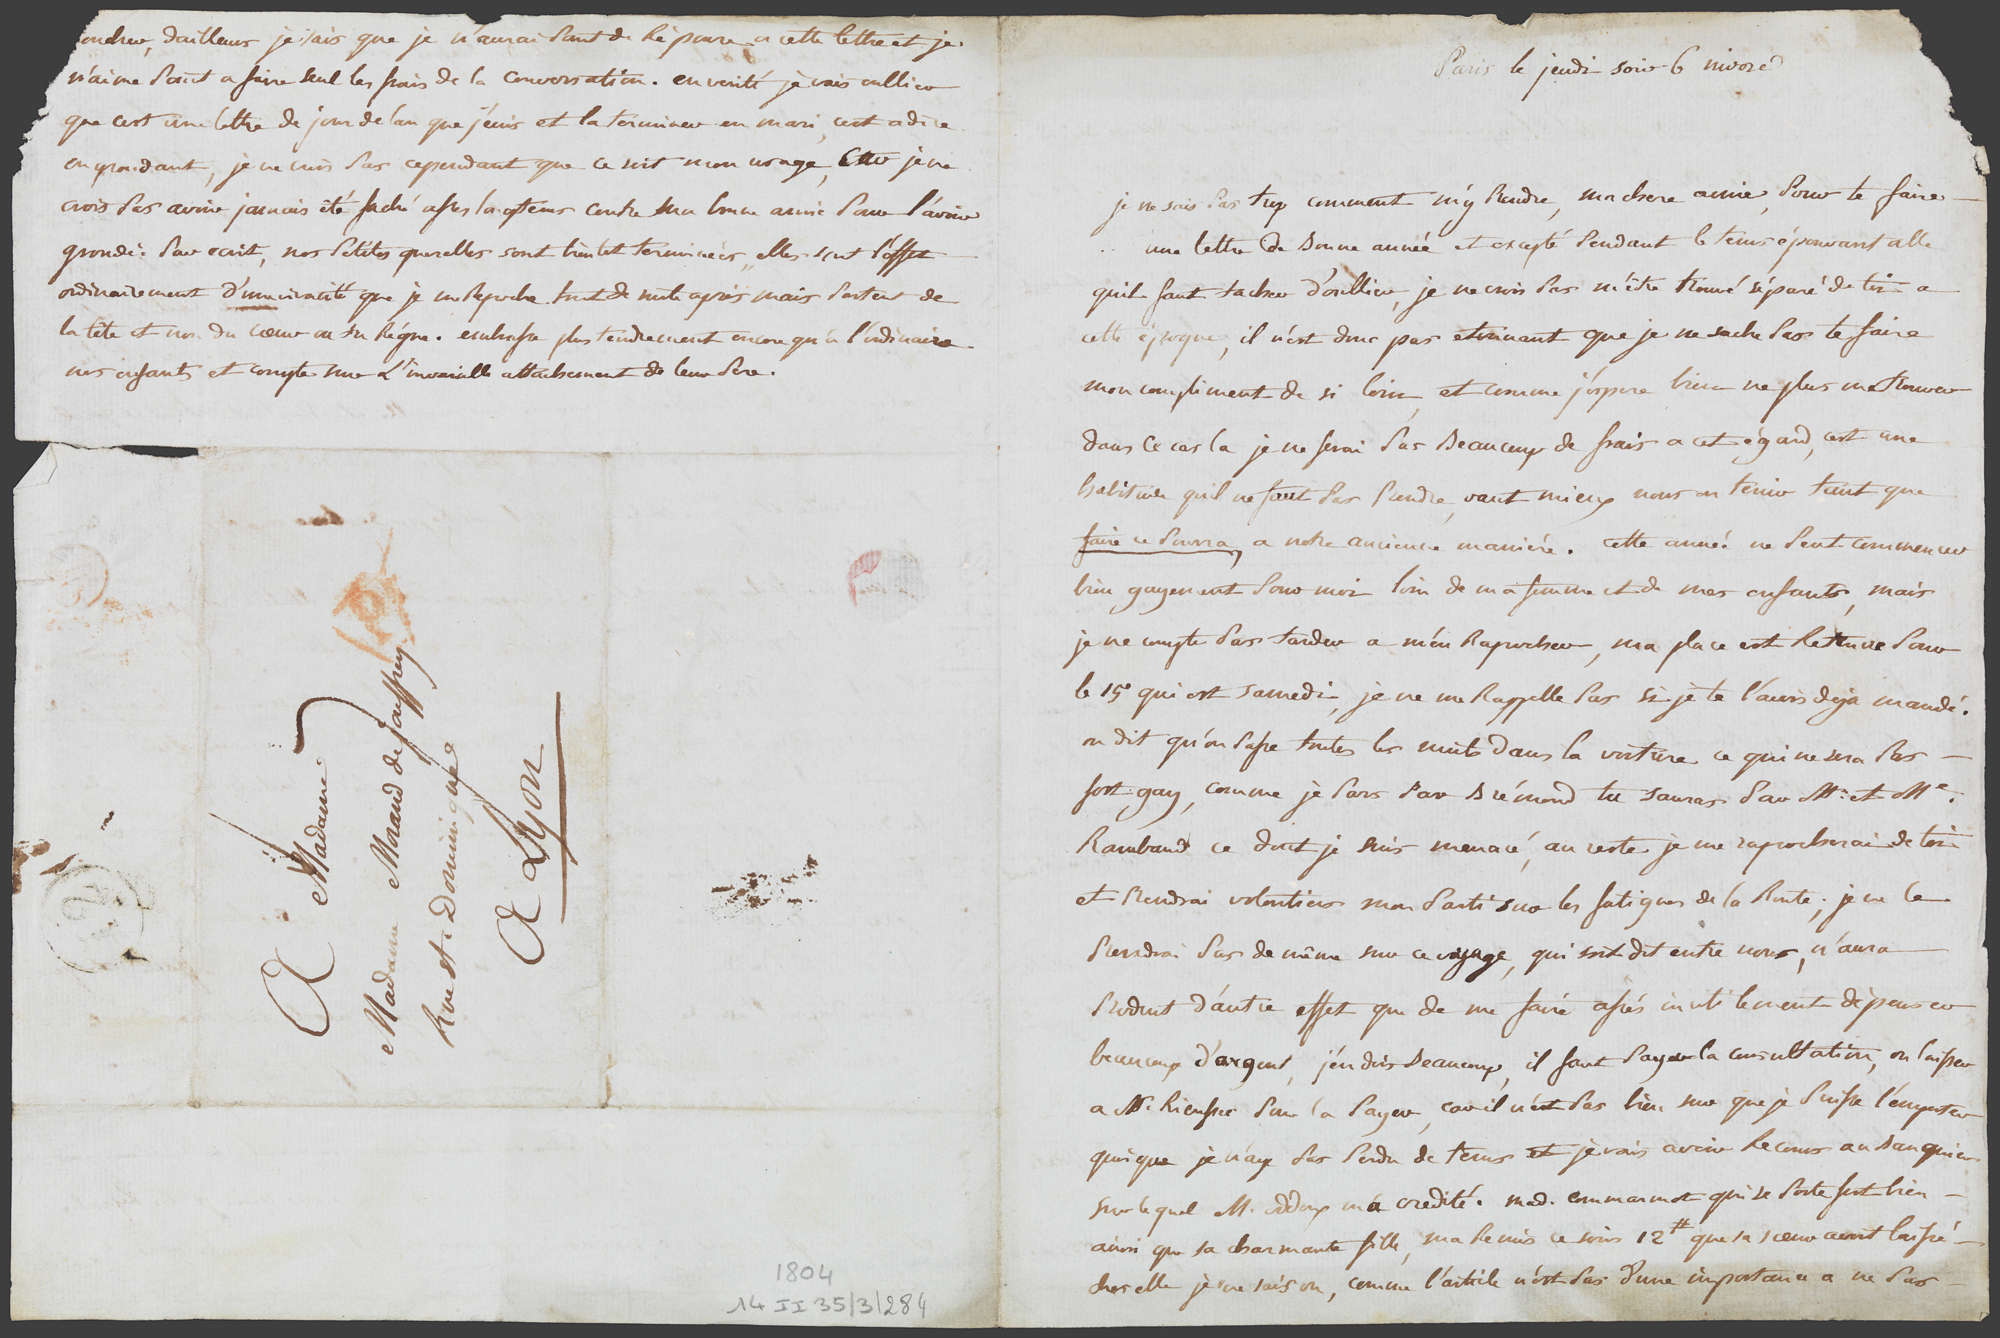 Paris le jeudi soir 6 nivose
je ne sais pas trop comment m'y prendre, ma chere amie, pour te faire
une lettre de bonne année et excepté pendant le tems épouvantable
qu'il faut tacher d'oublier, je ne crois pas m'être trouvé séparé de toi a
cette époque, il n'est donc pas etonnant que je ne sache pas te faire
mon compliment de si loin, et comme j'espere bien ne plus me trouver
dans ce cas la je ne ferai pas beaucoup de frais a cet égard, c'est une
habitude qu'il ne faut pas prendre, vaut mieux nous en tenir tant que
faire ce pourra, a notre ancienne maniére. cette année ne peut commencer
bien gayement pour moi loin de ma femme et de mes enfants, mais
je ne compte pas tarder a m'en raprocher, ma place est retenue pour
le 15 qui est samedi, je ne me rappelle pas si je te l'avois deja mandé.
on dit qu'on passe toutes les nuits dans la voiture ce qui ne sera pas
fort gay, comme je pars par Brémond tu sauras par Mr. et Me.
Rambaud ce dont je suis menacé, au reste je me raprocherai de toi
et prendrai volontiers mon parti sur les fatigues de la route, je ne le
prendrai pas de même sur ce voyage, qui soit dit entre nous, n'aura
produit d'autre effet que de me faire assés inutilement dépenser
beaucoup d'argent, j'en dois beaucoup, il faut payer la consultation, ou laisser
a Mr. Rieussec pour la payer, car il n'est pas bien sur que je puisse l'emporter
quoique je n'aye pas perdu de tems et je vais avoir recours au banquier
sur lequel M. m'a credité. mad. commarmot qui se porte fort bien
ainsi que sa charmante fille, m'a remis ce soir 12# que sa soeur avoit laissé
chés elle je ne sais ou, comme l'article n'est pas d'une importance a ne pas
d'ailleurs je sais que je n'aurai point de réponse a cette lettre et je
n'aime point a faire seul les frais de la conversation. en verité je vais oublier
que c'est une lettre de jour de l'an que j'ecris et la terminer en mari, c'est a dire
en grondant, je ne crois pas cependant que ce soit mon usage, car je ne
crois pas avoir jamais été faché assés longtems contre ma bonne amie pour l'avoir
grondé par ecrit, nos petites querelles sont bientot terminées, elles sont l'effet
ordinairement d'une vivacité que je me reproche tout de suite après mais partent de
la tête et non du coeur ou tu régne. embrasse plus tendrement encore qu'a l'ordinaire
nos enfants et compte sur l'inviolable attachement de leur pere.
A Madame
Madame Morand de jouffrey
Rue st. Dominique
A Lyon
1804
14 II 35/3/284